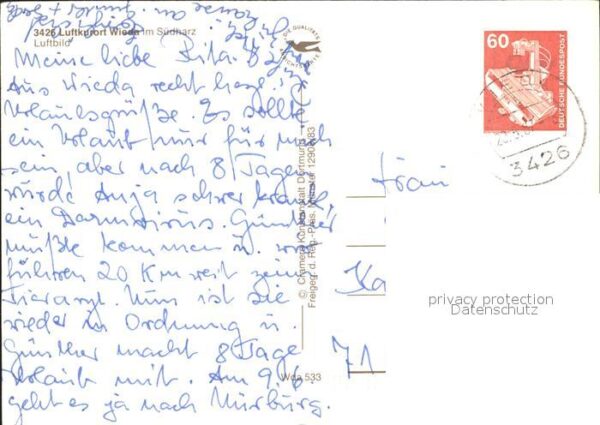 3426 Luftkurort Wieda im Südharz
Luftbild
DIE QUALITÄTS
Meine liebe Rita.
Aus Wieda recht herzl.
Urlaubsgrüße. Es sollte
ein Urlaub nur für mich
sein, aber nach 8 Tagen
würde Anja schwer krank,
ein Darmvirus. Günther
mußte kommen u. wir
führen 20 Km weit zum
Tierarzt. Nun ist sie
wieder in Ordnung u.
Günther macht 8 Tage
Urlaub mit. Am 9.6.
geht es ja nach Nürburg.
© Cramers Kunstanstalt Dortmund
Freigeg. d. Reg.-Präs. Münster 12908/83
Wda 533
60
DEUTSCHE BUNDESPOST
3426
Frau
Ka
71
privacy protection
Datenschutz